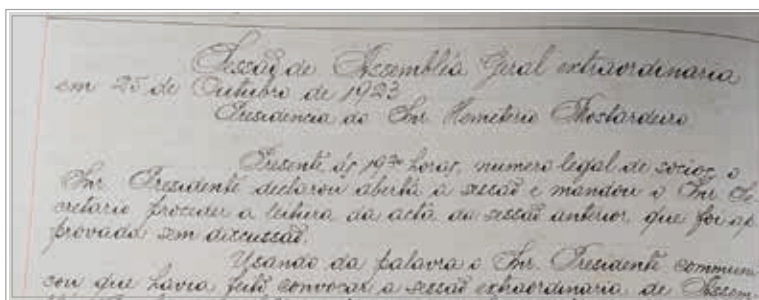 Sessão de Assembléa Geral extraordinaria
em 25 de Outubro de 1923
Presidencia do Snr. Hemeterio Mostardeiro
Presente ás 19 30 horas, numero legal de socios o
Snr. Presidente declarou aberta a sessão e mandou o Snr. Se-
cretario proceder a leitura da acta da sessão anterior, que foi ap-
provada sem discussão.
Usando da palavra o Snr. Presidente communi-
cou que havia feito convocar a sessão extraordinaria de Assem-